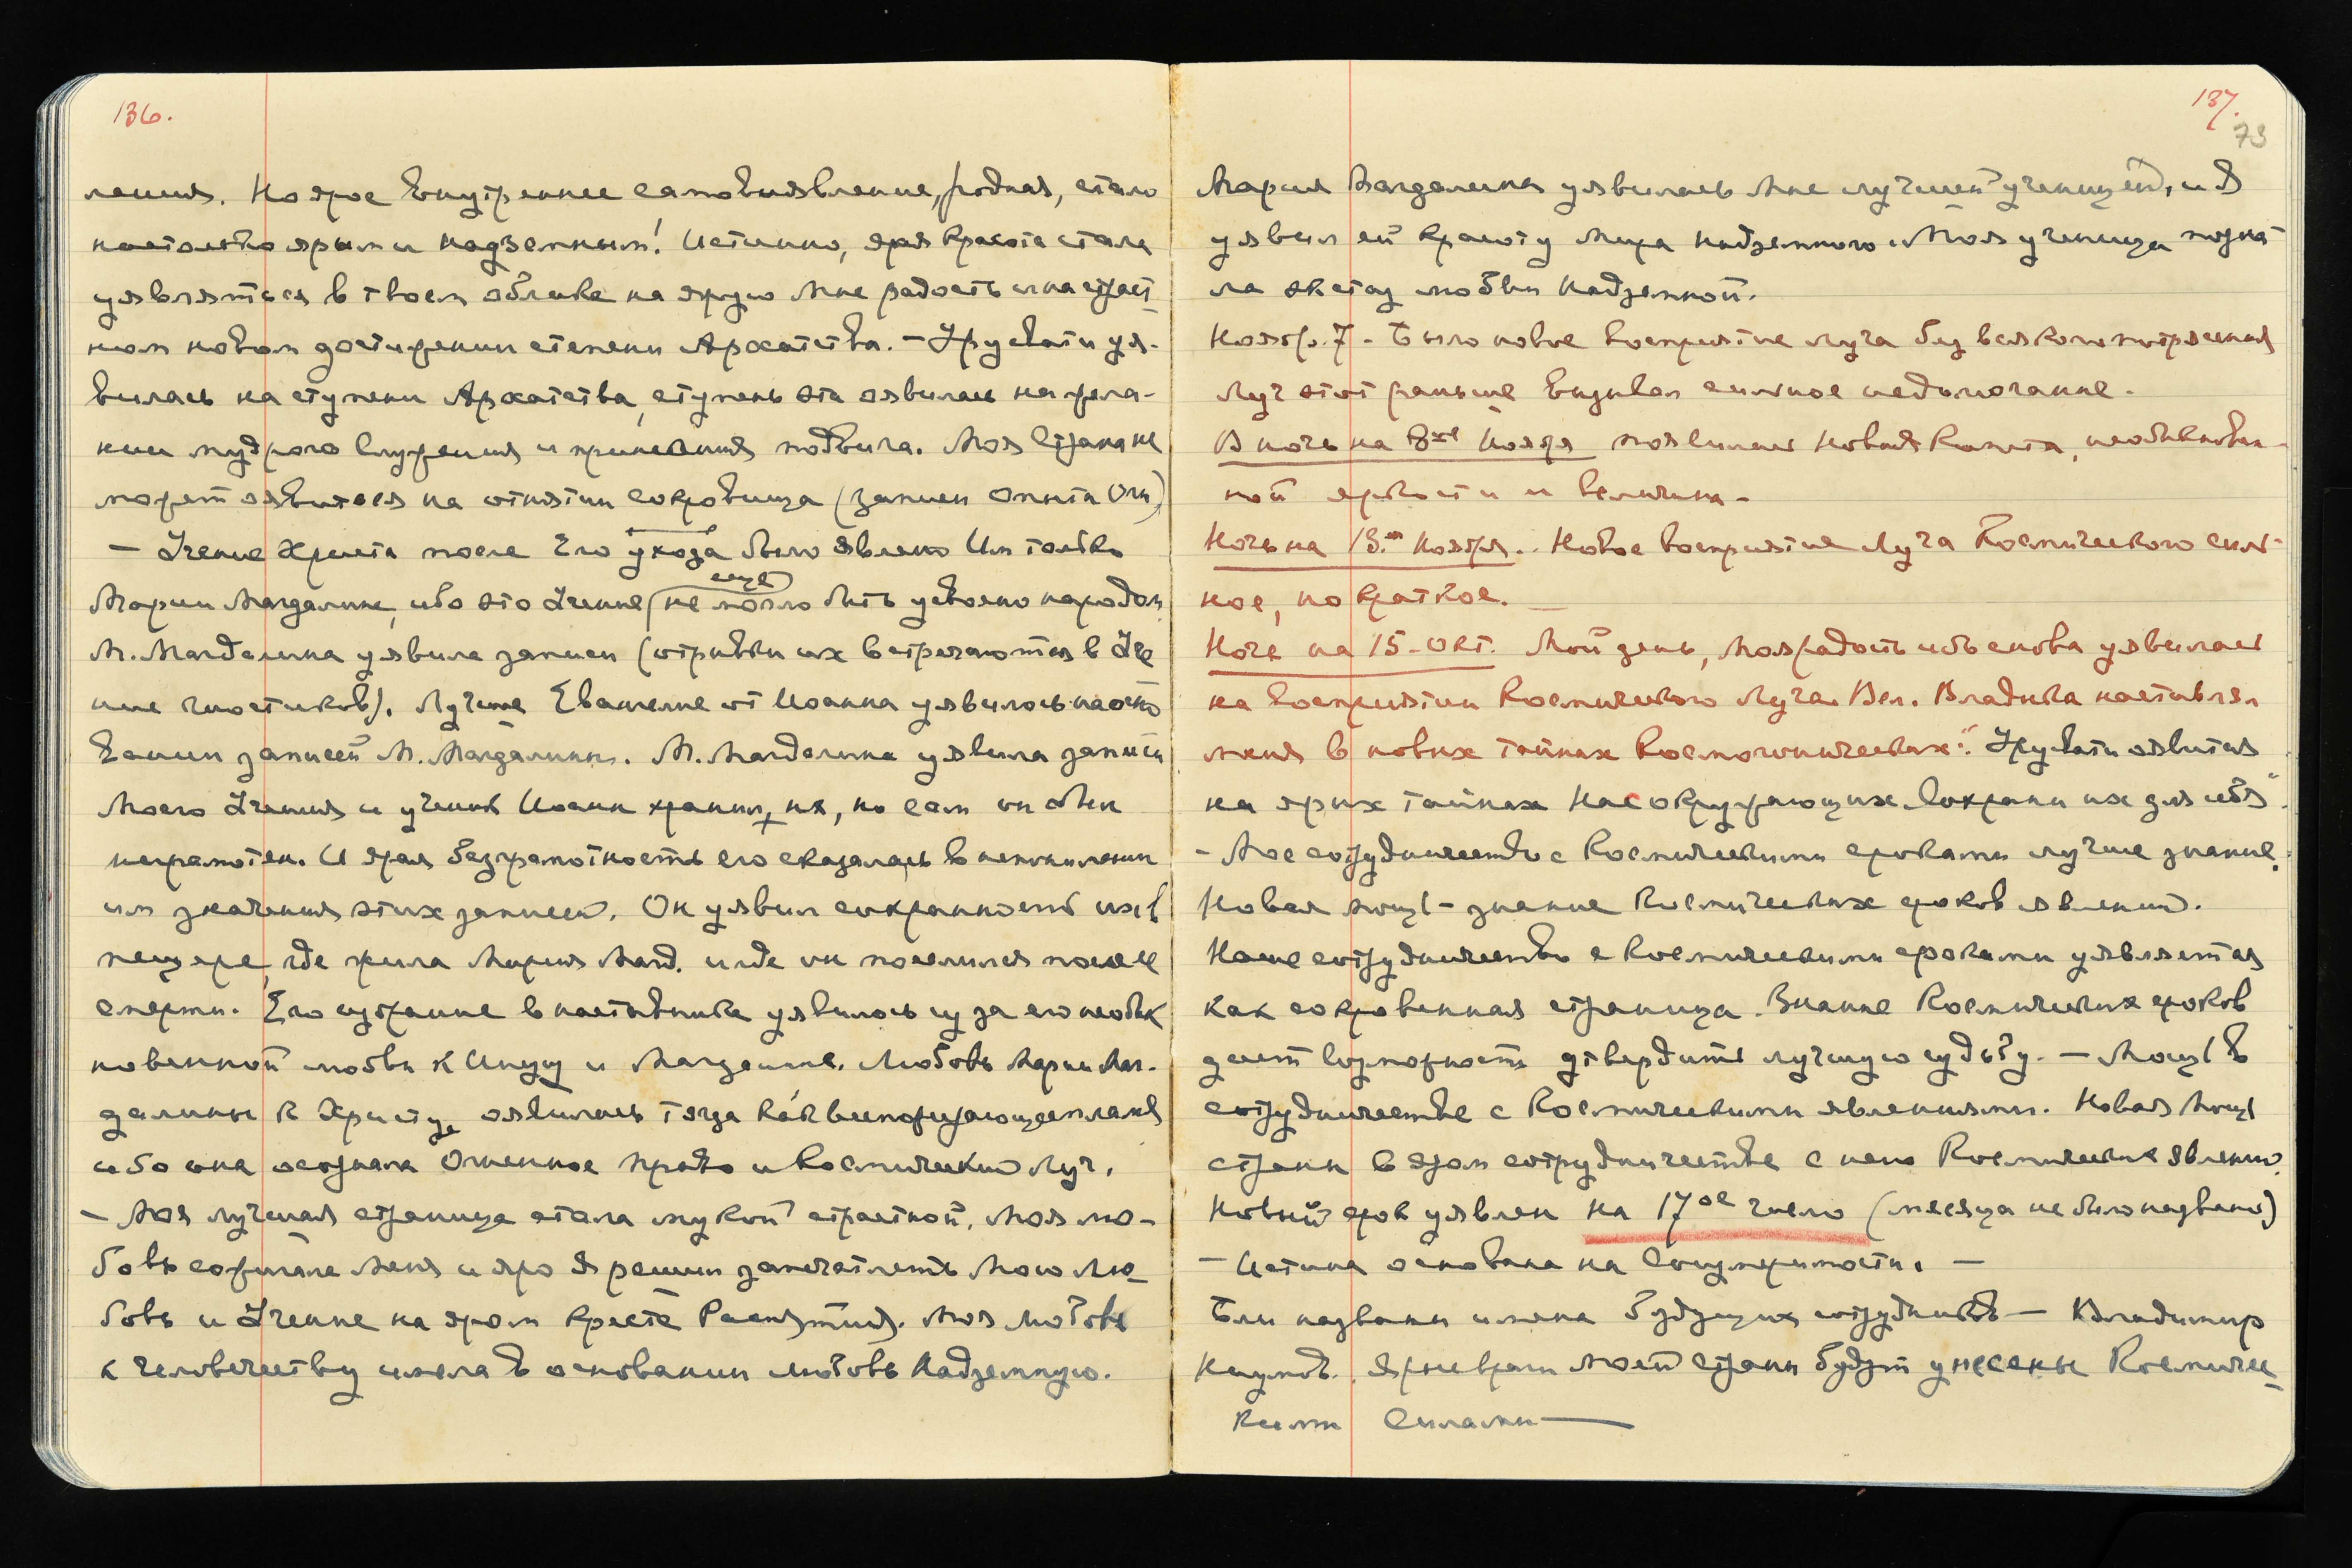 136.
ления. Но ярое внутреннее самовыявление, родная, стало
настолько ярым и надземным! Истинно, ярая красота стала
уявляться в твоем облике на ярую Мне радость и на счаст-
ном новом достижении степени Архатства. – Урусвати уя-
вилась на ступени Архатства, ступень эта явилась на жела-
нии мудрого служения и принесения подвига. Моя страна не
может явиться на отнятии сокровища (записи опыта Огн.)
– Учение Христа после Его ухода было явлено Им только
Марии Магдалине, ибо это Учение еще не могло быть усвоено народом.
М. Магдалина уявила записи (отрывки их встречаются в Уче
нии гностиков). Лучшее Евангелие от Иоанна уявилось на осно
вании записей М. Магдалины. М. Магдалина уявила записи
Моего Учения и ученик Иоанн хранил их, но сам он был
неграмотен. И ярая безграмотность его сказалась в непонимании
им значения этих записей. Он уявил сохранность их в
пещере, где жила Мария Магд. и где он поселился после ее
смерти. Его устремление в наставника уявилось из за его необык
новенной любви к Иисусу и Магдалине. Любовь Марии Маг-
далины к Христу явилась тогда как всепожирающее пламя
ибо она осознала Огненное право и Космический Луч.
– Моя лучшая страница стала мукой страстной. Моя лю-
бовь сожигала Меня и яро Я решил запечатлеть Мою Лю-
бовь и Учение на яром кресте Распятия. Моя Любовь
к человечеству имела в основании любовь Надземную.
137.
73
Мария Магдалина уявилась Мне лучшей ученицей, и Я
уявил ей красоту Мира надземного. Моя ученица позна-
ла экстаз любви Надземной.
Ноябр. 7 – Было новое восприятие луча без всякого потрясения
Луч этот раньше вызывал сильное недомогание.
В ночь на 8ое Ноября появилась новая Комета, необыкновен-
ной яркости и величины –
Ночь на 13.ое Ноября. Новое восприятие Луча Космического силь-
ное, но краткое.
Ночь на 15-Окт. Мой день, Моя радость ибо снова уявилась
на восприятии Космического Луча. Вел. Владыка наставлял
меня в новых тайнах Космогонических". Урусвати явится
на ярых тайнах Нас окружающих. Сохрани их для себя".
– Мое сотрудничество с Космическими сроками лучшее знание.
Новая мощь – знание Космических сроков явлений.
Наше сотрудничество с Космическими сроками уявляется
как сокровенная страница. Знание Космических сроков
дает возможность утвердить лучшую судьбу. – Мощь в
сотрудничестве с Космическими явлениями. Новая Мощь
страны в яром сотрудничестве с нею Космических явлений.
Новый срок уявлен на 17ое число (месяца не было названо)
– Истина основана на Соизмеримости. –
Были названы имена будущих сотрудников – Владимир
Ярые враги Моей страны будут унесены Космичес-
кими Силами —